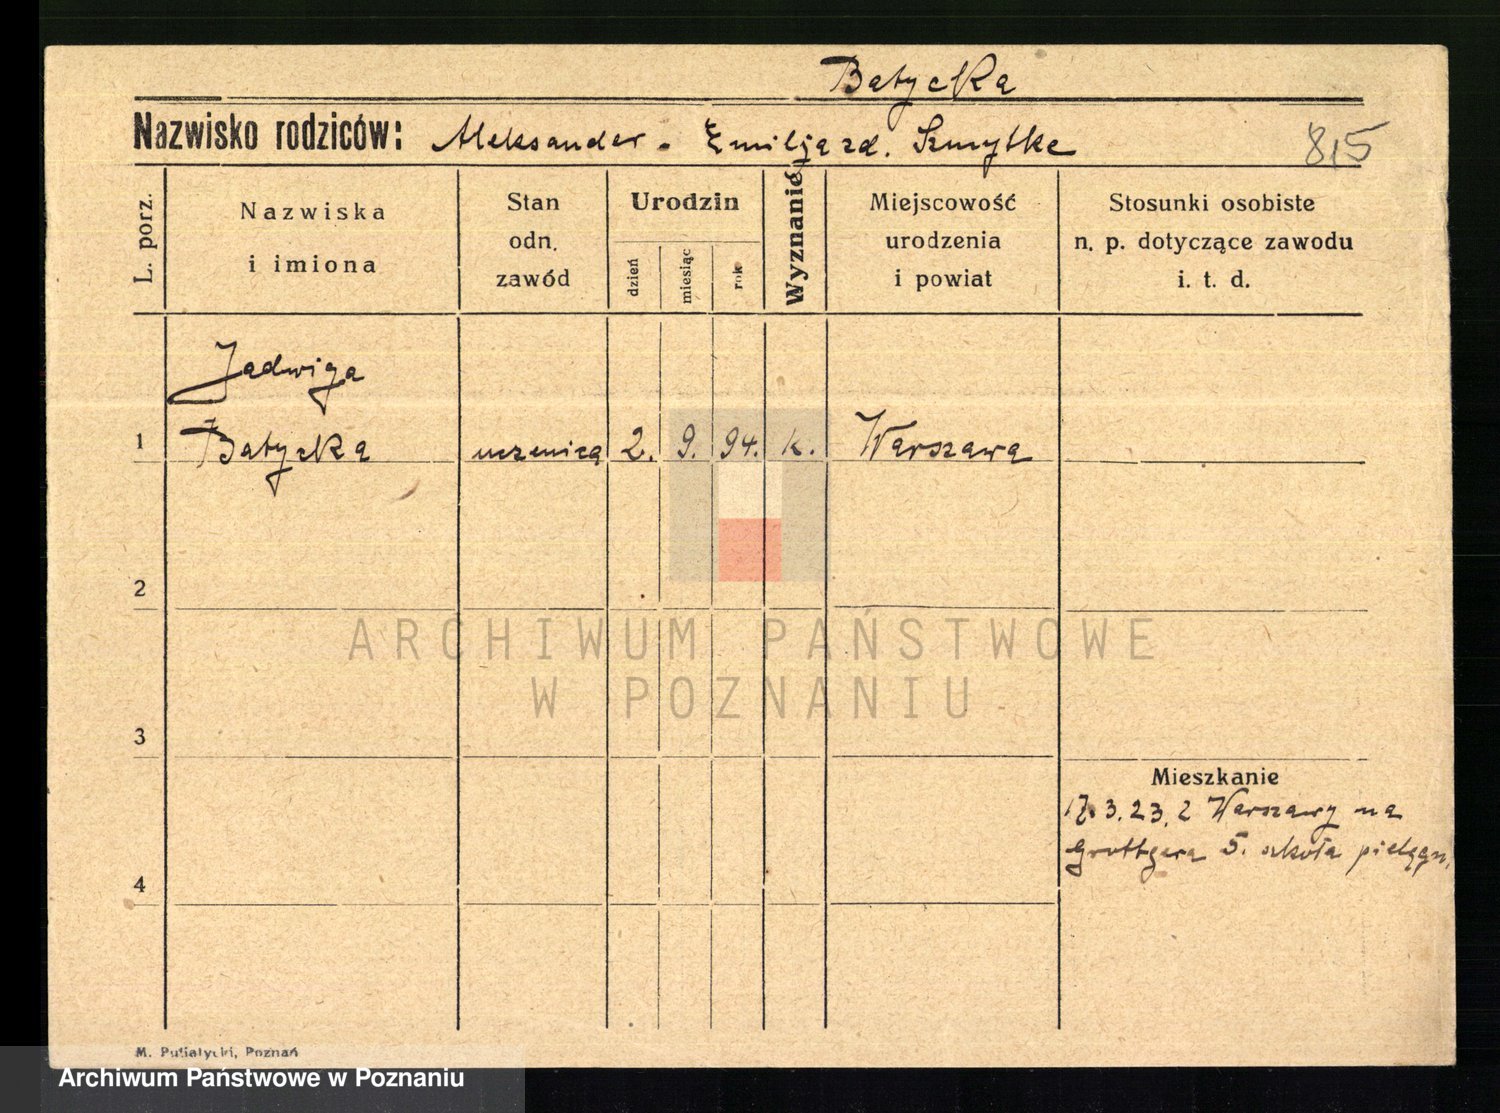 Batycka
Nazwisko rodziców: Aleksander - Emilja zd. Szmytke 815
L. porz.
Nazwiska i imiona
Stan odn. zawód
Urodzin
dzień miesiąc rok
Wyznanie
Miejscowość urodzenia i powiat
Stosunki osobiste n. p. dotyczące zawodu i. t. d.
Jadwiga
1 Batycka uczenica 2. 9. 94. k. Warszawa
2
ARCHIWUM PAŃSTWOWE
W POZNANIU
3
Mieszkanie
17. 3. 23. z Warszawy na
4 Grottgera 5. szkoła pielęgn.
M. Putiatycki, Poznań
Archiwum Państwowe w Poznaniu